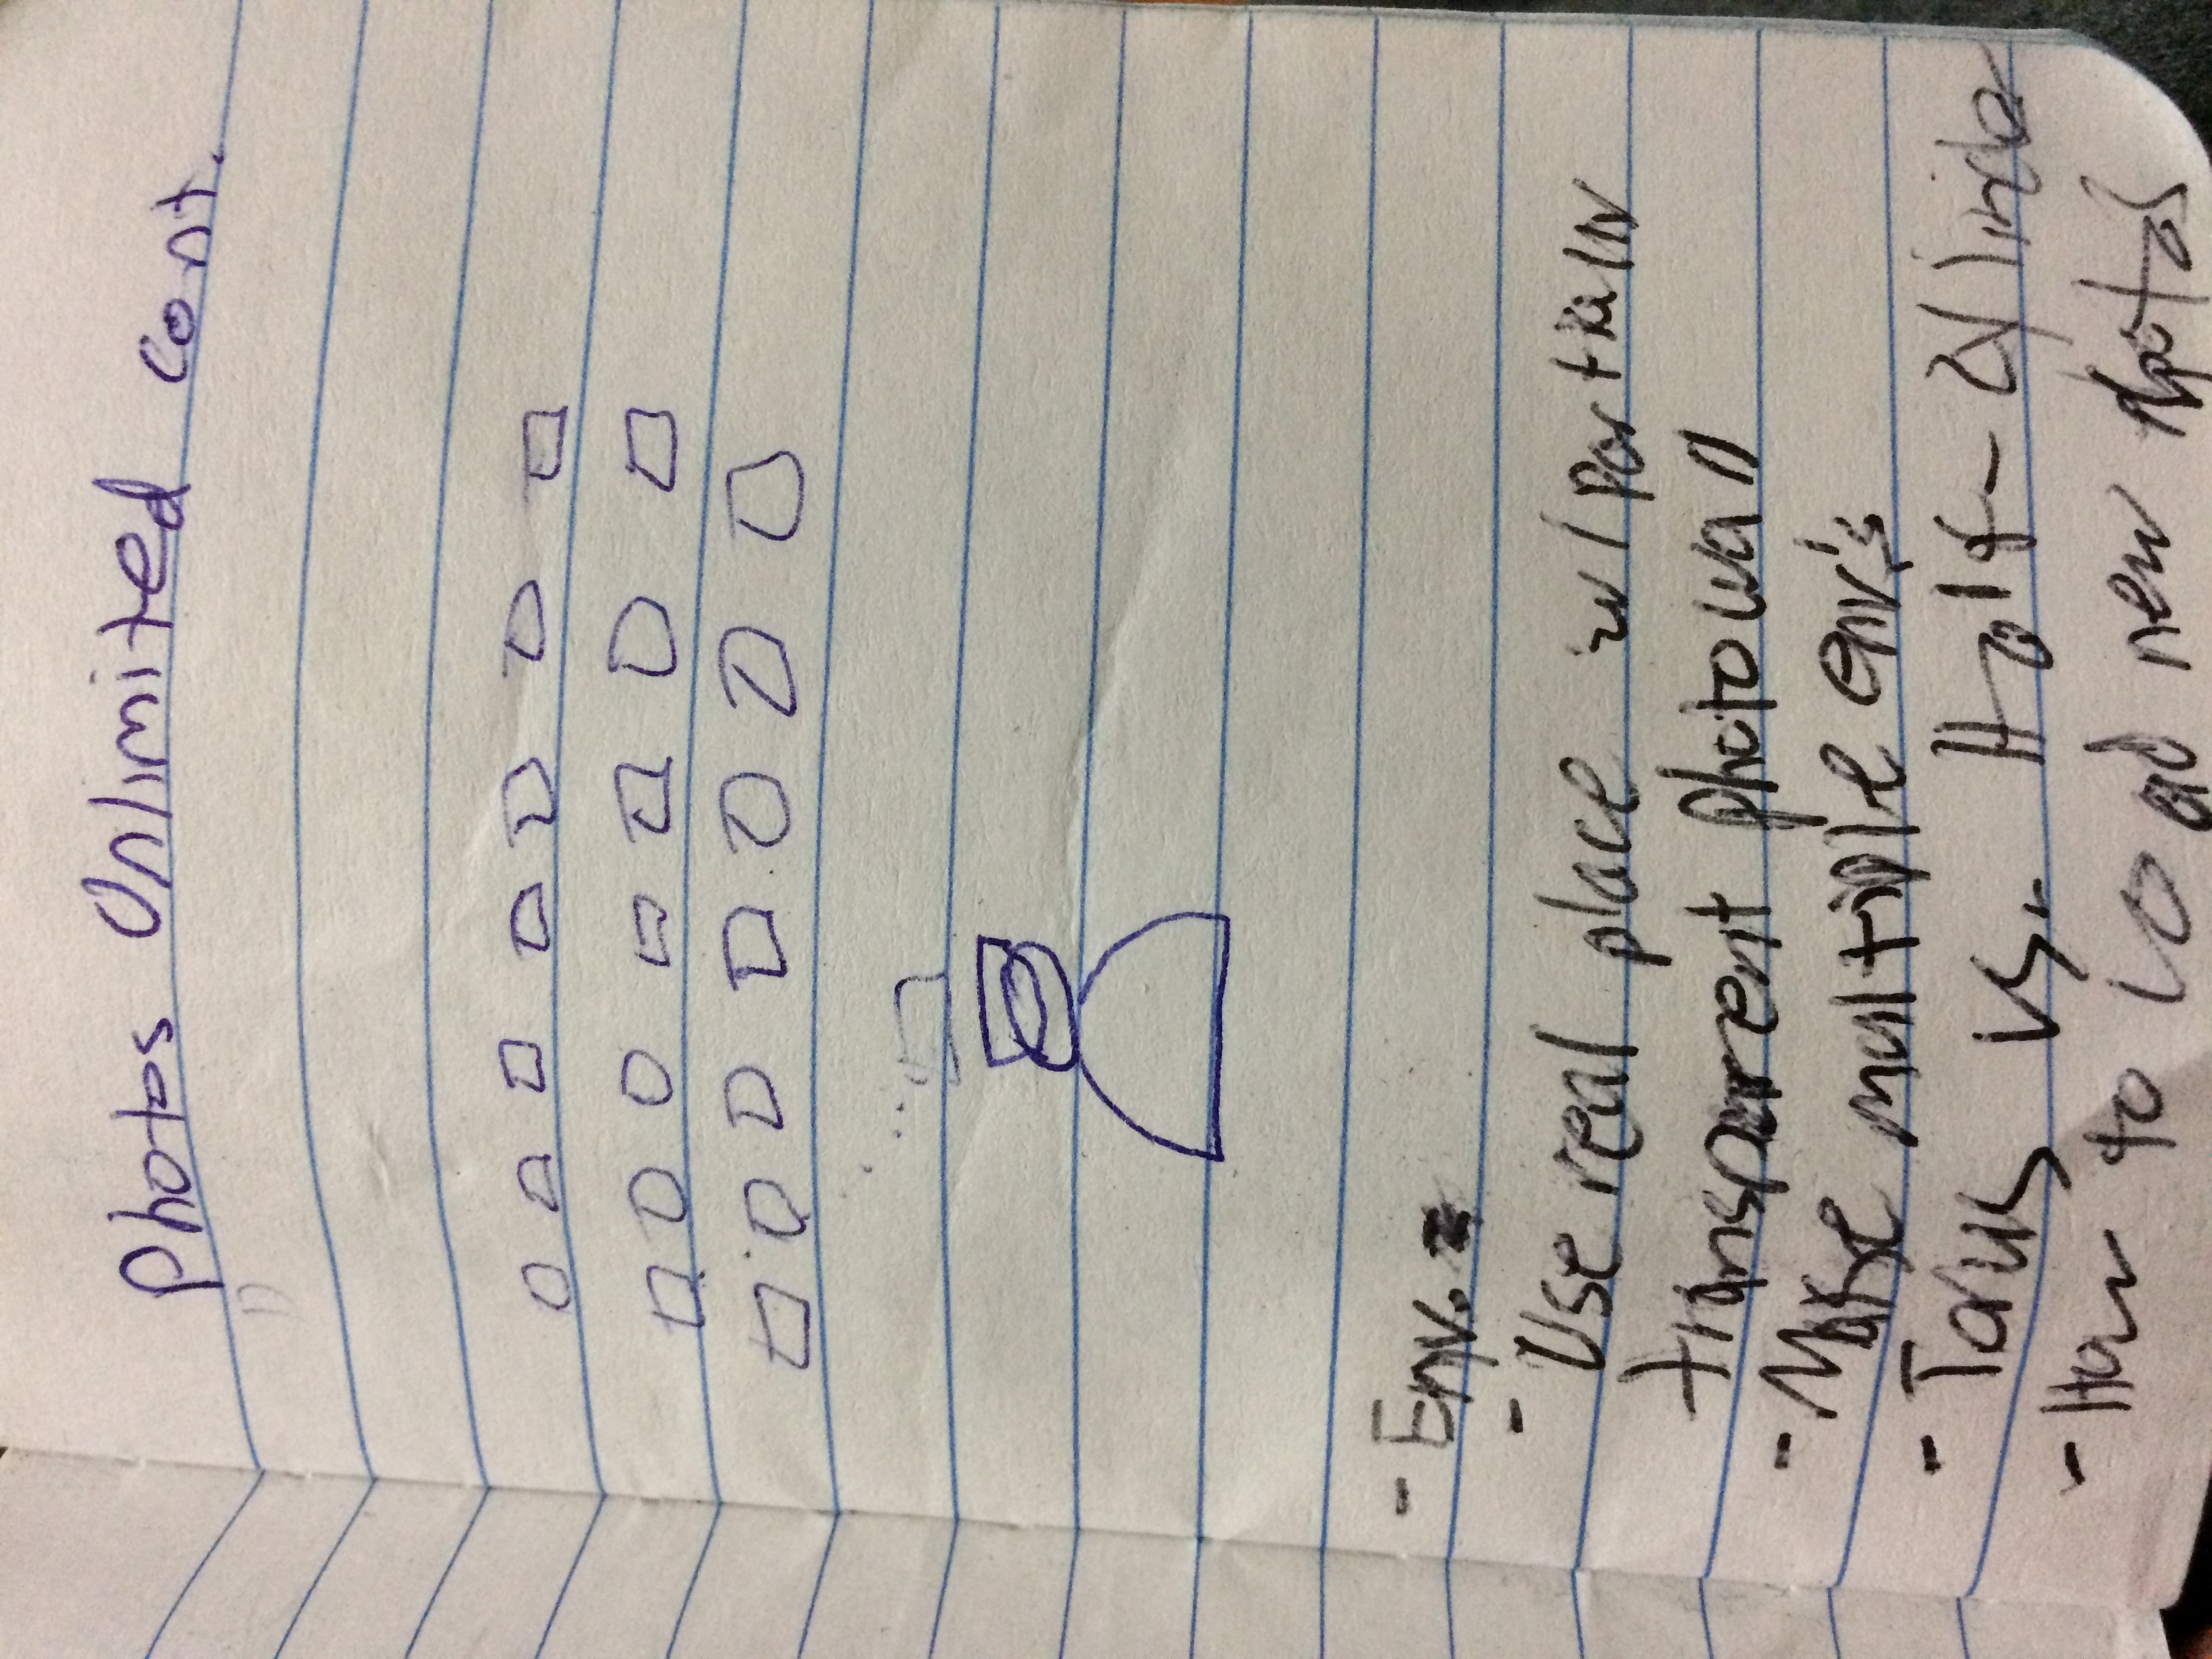 Photos Unlimited cont.
- Env.
- Use real place w/ partially
transparent photowall
- Make multiple env's
- Torus vs. Half-Cylinder
- How to load new photos